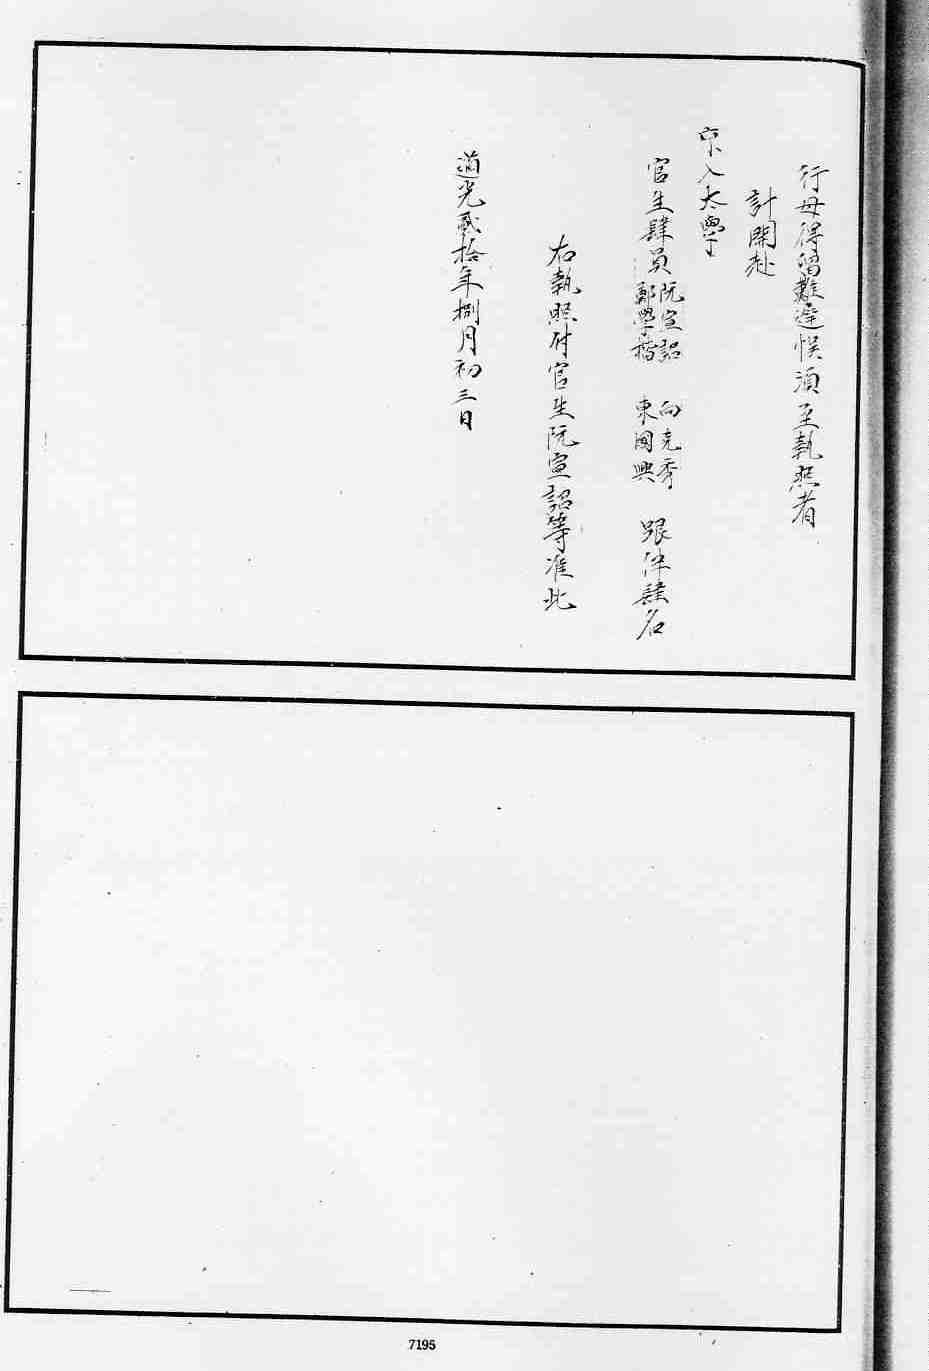 行毋得留難遲悞須至執照者
計開赴
京入太學
官生肆員阮宣詔 向克秀 跟伴肆名
鄭學楷 東國興
右執照付官生阮宣詔等准此
道光貳拾年捌月初三日
7195